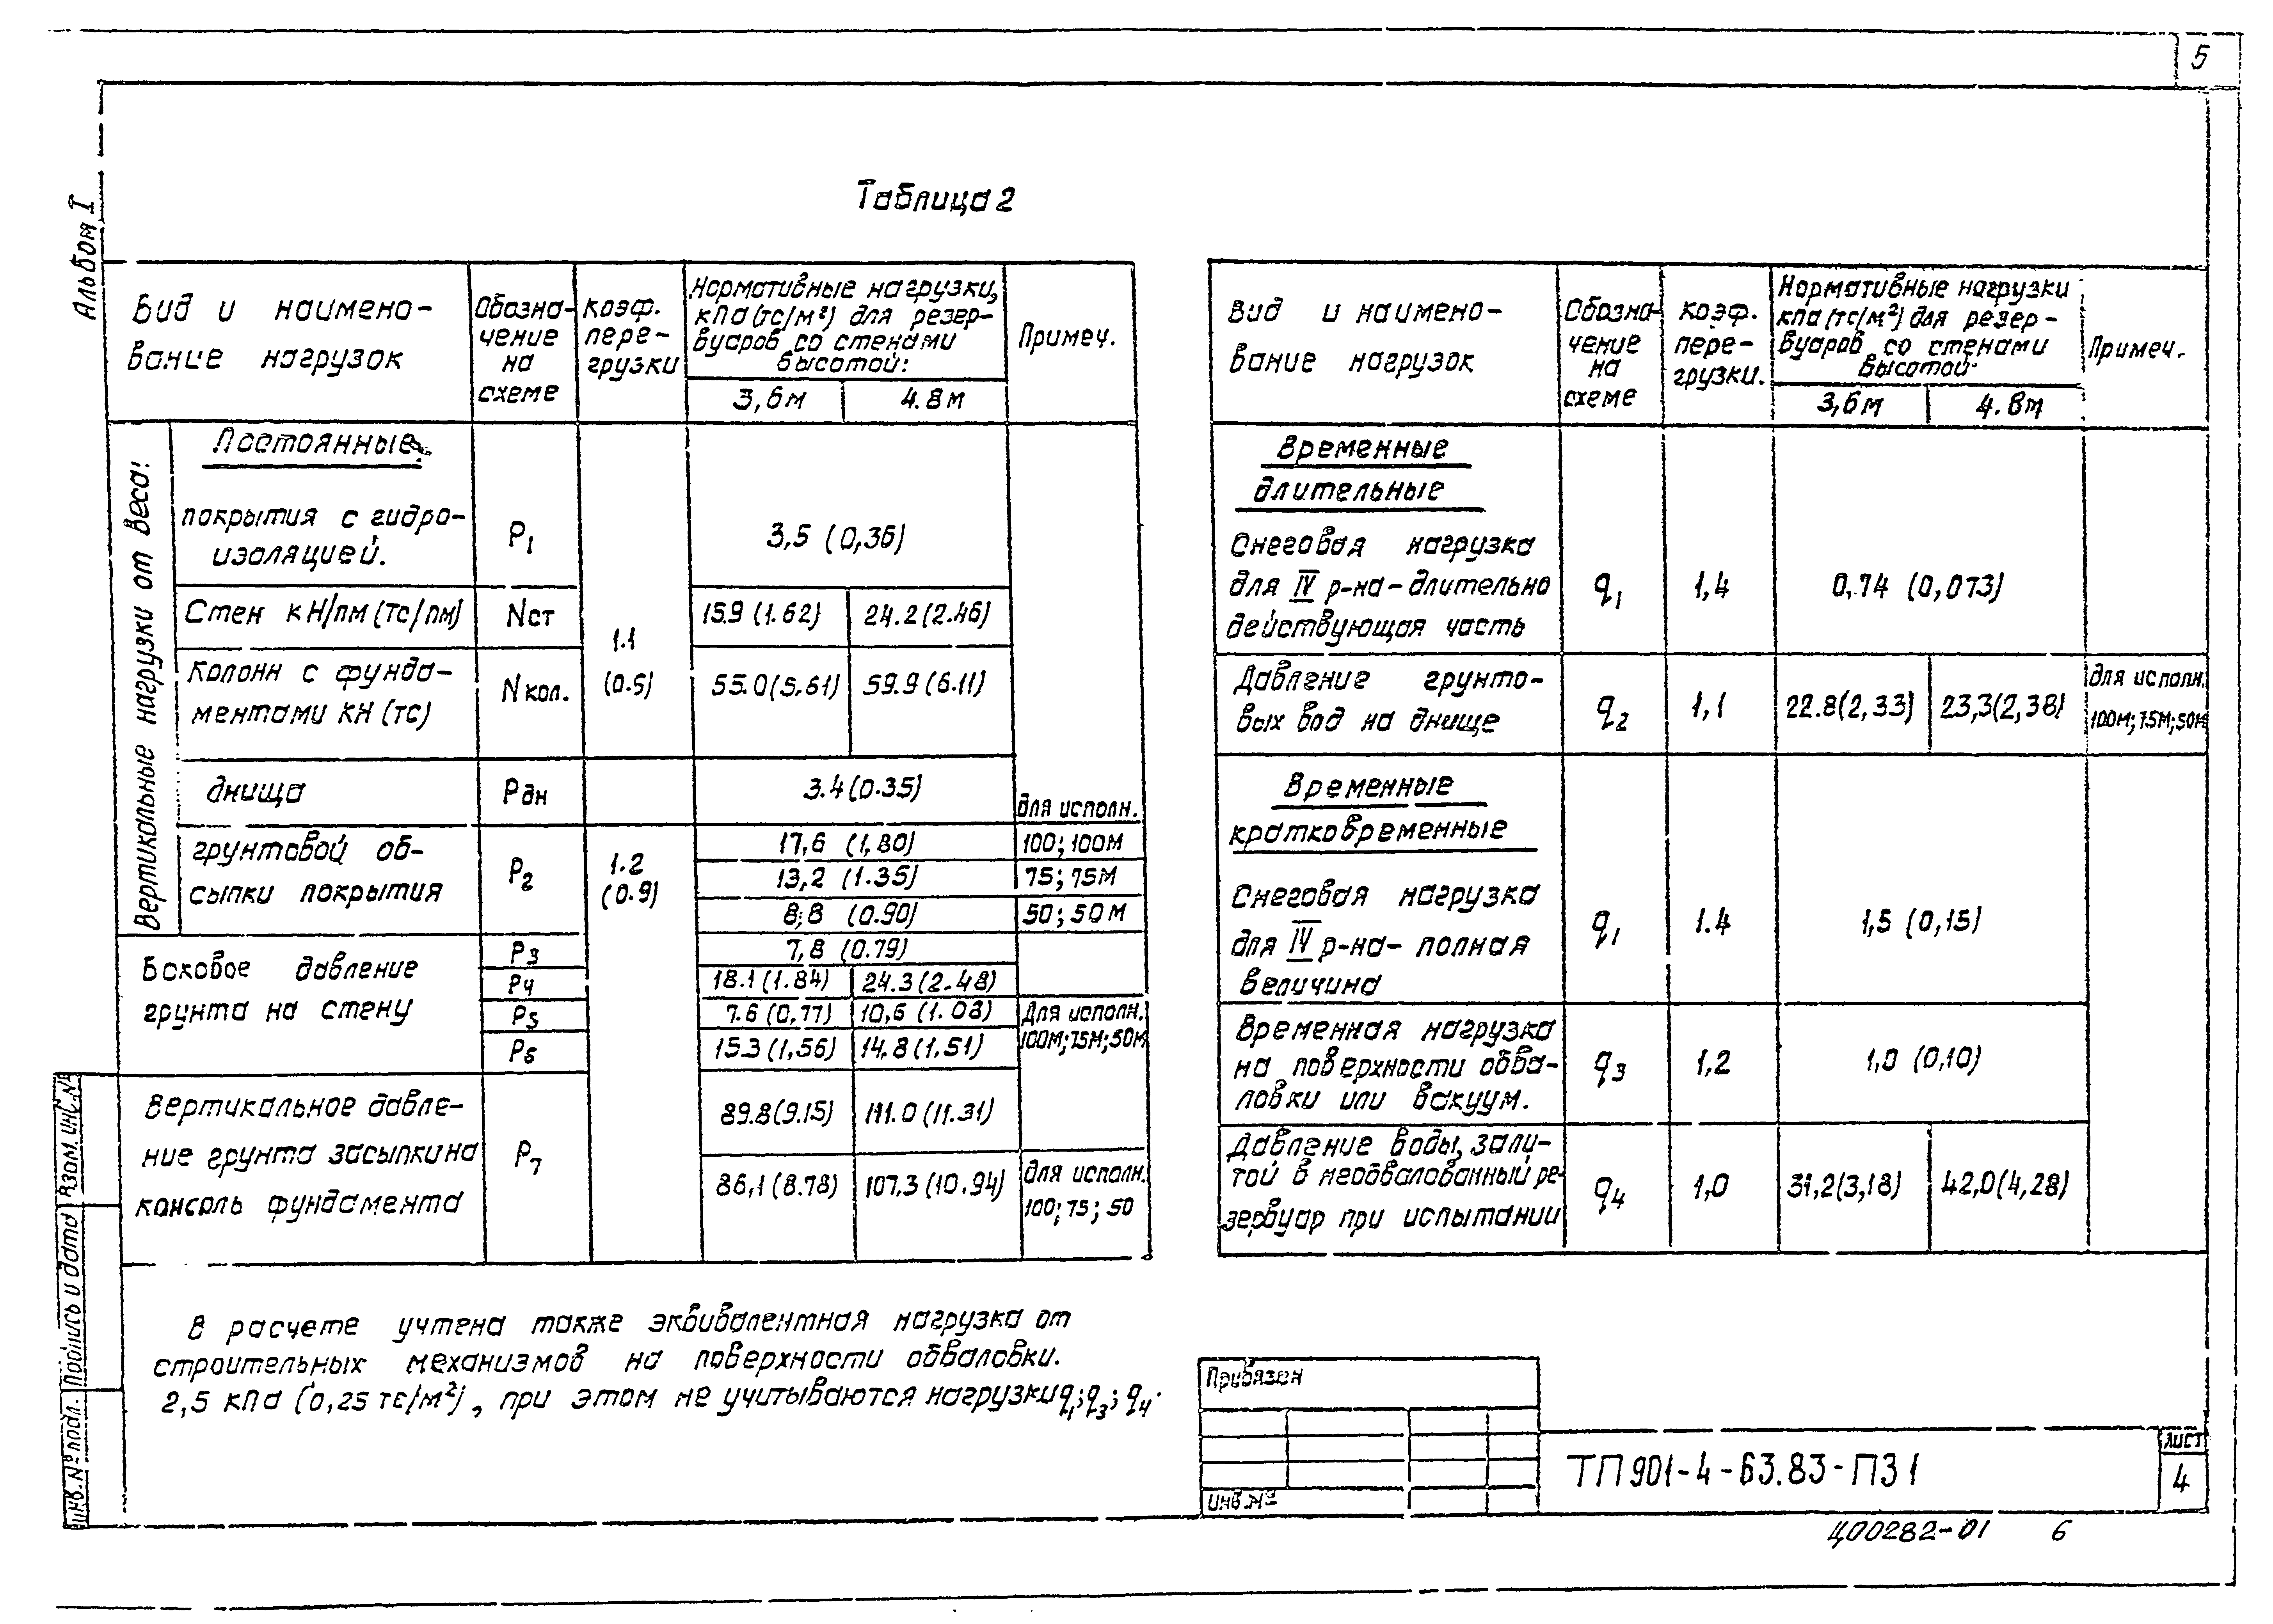 5
Альбом I
Таблица 2
Вид и наимено-
вание нагрузок
Обозна-
чение
на
схеме
коэф.
пере-
грузки
Нормативные нагрузки,
кПа (тс/м²) для резер-
вуаров со стенами
высотой:
3,6м
4.8м
Примеч.
Вертикальные нагрузки от веса:
Постоянные
покрытия с гидро-
изоляцией.
P1
3,5 (0,36)
Стен кН/пм (тс/пм)
Nст
15.9 (1.62)
24.2 (2.46)
1.1
Колонн с фунда-
ментами кН (тс)
Nкол.
55.0(5.61)
59.9 (6.11)
днища
Pдн
3.4 (0.35)
для исполн.
грунтовой об-
сыпки покрытия
P2
1.2
(0.9)
17,6 (1,80)
100; 100М
13,2 (1.35)
75; 75М
8,8 (0.90)
50; 50М
Боковое давление
грунта на стену
P3
7,8 (0.79)
P4
18.1 (1.84)
24.3 (2.48)
P5
7.6 (0,77)
10,6 (1.08)
Для исполн.
100М;75М;50М
P6
15.3 (1,56)
14.8 (1.51)
Вертикальное давле-
ние грунта засыпки на
консоль фундамента
P7
89.8 (9.15)
111.0 (11.31)
86,1 (8.78)
107.3 (10.94)
для исполн.
100; 75; 50
Вид и наимено-
вание нагрузок
Обозна-
чение
на
схеме
коэф.
пере-
грузки.
Нормативные нагрузки
кПа (тс/м²) для резер-
вуаров со стенами
высотой:
3,6м
4.8м
Примеч.
Временные
длительные
Снеговая нагрузка
для IV р-на-длительно
действующая часть
q1
1,4
0,74 (0,073)
Давление грунто-
вых вод на днище
q2
1,1
22.8(2,33)
23,3(2,38)
для исполн.
100М;75М;50М
Временные
кратковременные
Снеговая нагрузка
для IV р-на- полная
величина
q1
1.4
1,5 (0,15)
Временная нагрузка
на поверхности обва-
ловки или вакуум.
q3
1,2
1,0 (0,10)
Давление воды, зали-
той в необвалованный ре-
зервуар при испытании
q4
1,0
31,2(3,18)
42,0(4,28)
В расчете учтена также эквивалентная нагрузка от
строительных механизмов на поверхности обваловки.
2,5 кПа (0,25 тс/м²), при этом не учитываются нагрузки q1; q3; q4.
Привязан
Инв.№
ТП 901-4-63.83-ПЗ 1
Лист
4
Ц00282-01 6
Взам. инв.№
Подпись и дата
Инв.№ подл.